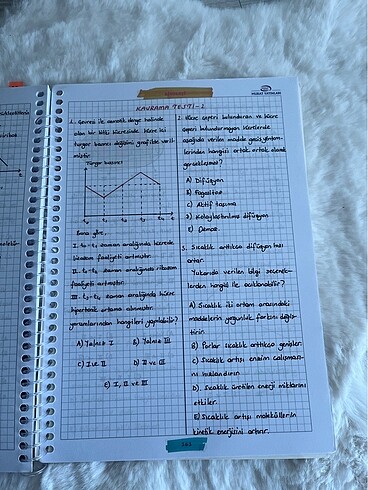 MURAT YAYINLARI
KAVRAMA TESTİ-2
1. Çevresi ile osmotik denge halinde
olan bir bitki hücresinde hücre içi
turgor basıncı değişimi grafikte veril-
miştir.
Turgor basıncı
t₀ t₁ t₂ t₃ t₄
Buna göre,
I. t₀-t₁ zaman aralığında hücrede
fiksasyon faaliyeti artmıştır.
II. zaman aralığında ribozom
faaliyeti artmıştır.
III. zaman aralığında hücre
hipertonik ortama alınmıştır.
yorumlarından hangileri yapılabilir?
A) Yalnız I B) Yalnız III
C) I ve II D) II ve III
E) I, II ve III
2. Hücre çeperi bulunduran ve hücre
çeperi bulundurmayan hücrelerde
aşağıda verilen madde geçiş yöntem-
lerinden hangisi ortak olarak
gerçekleşmez?
A) Difüzyon
B) Fagositoz
C) Aktif taşıma
D) Kolaylaştırılmış difüzyon
E) Osmoz
3. Sıcaklık arttıkça difüzyon hızı
artar.
Yukarıda verilen bilgi seçenek-
lerden hangisi ile açıklanabilir?
A) Sıcaklık iki ortam arasındaki
maddelerin yoğunluk farkını değiş-
tirir.
B) Porlar sıcaklık arttıkça genişler.
C) Sıcaklık artışı enzim çalışması-
nı hızlandırır.
D) Sıcaklık üretilen enerji miktarını
etkiler.
E) Sıcaklık artışı moleküllerin
kinetik enerjisini artırır.